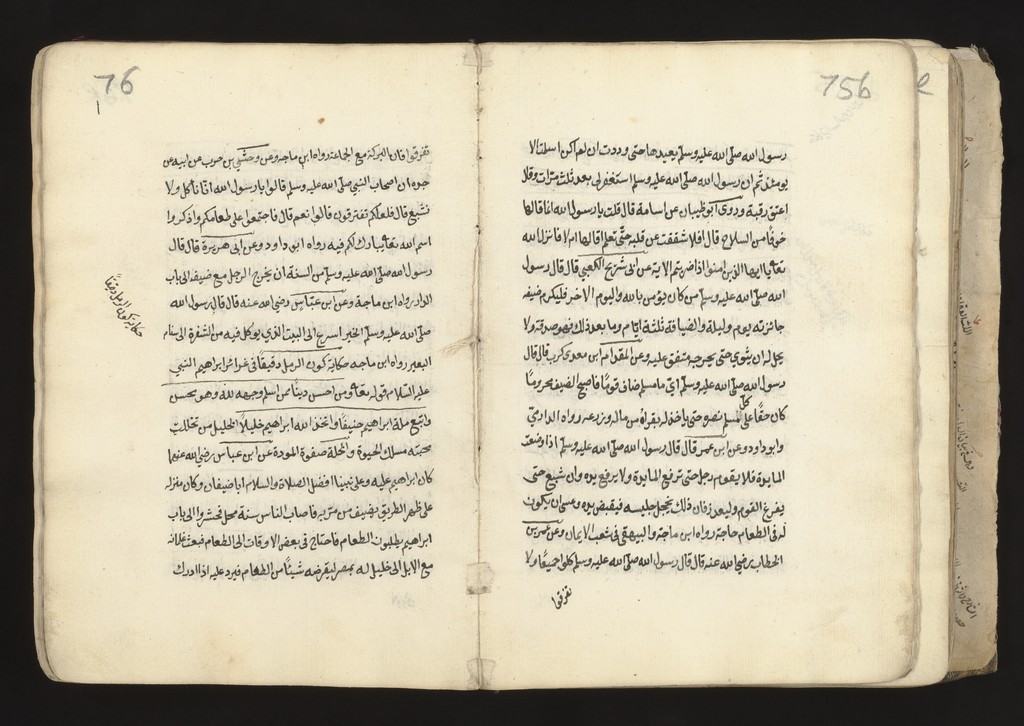 756
رسول الله صلى الله عليه وسلم يعيدها حتى وددت ان لم اكن اسلمت الا
يومئذ ثم ان رسول الله صلى الله عليه وسلم استغفر لى بعد ثلث مرات وقال
اعتق رقبة وروى ابو ظبيان عن اسامة قال قلت يا رسول الله انما قالها
خوفا من السلاح قال افلا شققت عن قلبه حتى تعلم اقالها ام لا فانزل الله
تعالى يا ايها الذين امنوا اذا ضربتم الاية عن ابى شريح الكعبي قال قال رسول
الله صلى الله عليه وسلم من كان يؤمن بالله واليوم الاخر فليكرم ضيفه
جائزته يوم وليلة والضيافة ثلثة ايام وما بعد ذلك فهو صدقة ولا
يحل له ان يثوي حتى يحرجه متفق عليه وعن المقدام ابن معدي كرب قال قال
رسول الله صلى الله عليه وسلم اي ما مسلم ضاف قوما فاصبح الضيف محروما
كان حقا على كل المسلم نصره حتى ياخذ له بقراه من ماله وزرعه رواه الدارمي
وابو داود وعن ابن عمر قال قال رسول الله صلى الله عليه وسلم اذا وضعت
المايدة فلا يقوم رجل حتى ترفع المايدة ولا يرفع يده وان شبع حتى
يفرغ القوم وليعذر فان ذلك يخجل جليسه فيقبض يده وعسى ان يكون
له فى الطعام حاجة رواه ابن ماجة والبيهقى فى شعب الايمان وعن عمر بن
الخطاب رضي الله عنه قال قال رسول الله صلى الله عليه وسلم كلوا جميعا ولا
تفرقوا
76
تفرقوا فان البركة مع الجماعة رواه ابن ماجه وعن وحشي بن حرب عن ابيه عن
جده ان اصحاب النبي صلى الله عليه وسلم قالوا يا رسول الله انا ناكل ولا
نشبع قال فلعلكم تفترقون قالوا نعم قال فاجتمعوا على طعامكم واذكروا
اسم الله تعالى يبارك لكم فيه رواه ابو داود وعن ابى هريرة قال قال
رسول الله صلى الله عليه وسلم من السنة ان يخرج الرجل مع ضيفه الى باب
الدار رواه ابن ماجة وعن ابن عباس رضي الله عنه قال قال رسول الله
صلى الله عليه وسلم الخير اسرع الى البيت الذي يوكل فيه من الشفرة الى سنام
البعير رواه ابن ماجه حكاية كون الرمل دقيقا فى غرائر ابراهيم النبي
عليه السلام قوله تعالى ومن احسن دينا ممن اسلم وجهه لله وهو محسن
واتبع ملة ابراهيم حنيفا واتخذ الله ابراهيم خليلا الخليل من تخللت
محبته مسلك الحيوة والخلة صفوة المودة عن ابن عباس رضي الله عنهما
كان ابراهيم عليه وعلى نبينا افضل الصلاة والسلام ابا ضيفان وكان منزله
على ظهر الطريق يضيف من مر به فاصاب الناس سنة محل فحشروا الى باب
ابراهيم يطلبون الطعام فاحتاج فى بعض الاوقات الى الطعام فبعث غلمانه
مع الابل الى خليل له بمصر ليقرضه شيئا من الطعام فيرد عليه اذا ادرك
حكاية كون الرمل دقيقا